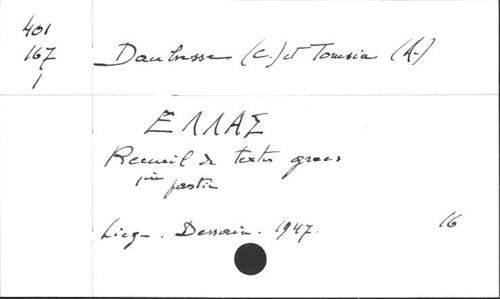 401
167
1
Daubresse (C.) et Tomsin (A.)
ΕΛΛΑΣ
Recueil de textes grecs
1ère partie
Liège. Dessain. 1947.
16